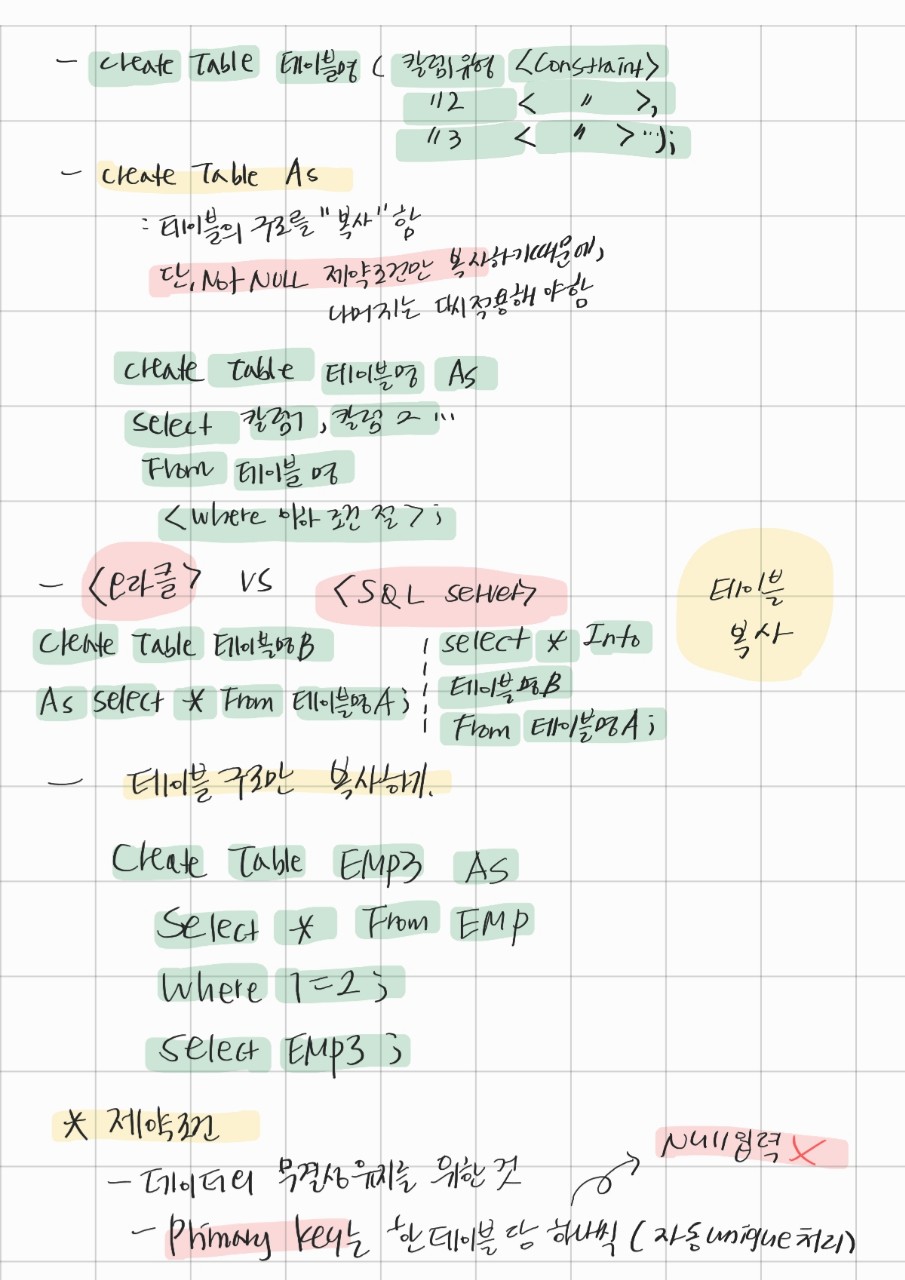 - Create Table 테이블명 ( 칼럼1 유형 <Constraint>
"2 < " >,
"3 < " > …);
- Create Table As
: 테이블의 구조를 "복사" 함
단, Not NULL 제약조건만 복사하기때문에,
나머지는 다시적용해 야함
Create table 테이블명 As
Select 칼럼1, 칼럼2 …
From 테이블 명
<where 이하 조건 절>;
- <오라클> VS <SQL server>
테이블
복사
Create Table 테이블명B
As select * From 테이블명A;
select * Into
테이블명B
From 테이블명A;
- 테이블 구조만 복사하기.
Create Table EMP3 AS
Select * From EMP
Where 1=2;
Select EMP3;
* 제약조건
- 데이터의 무결성유지를 위한 것
Null 입력 X
- Primary key는 한테이블 당 하나씩 (자동unique처리)